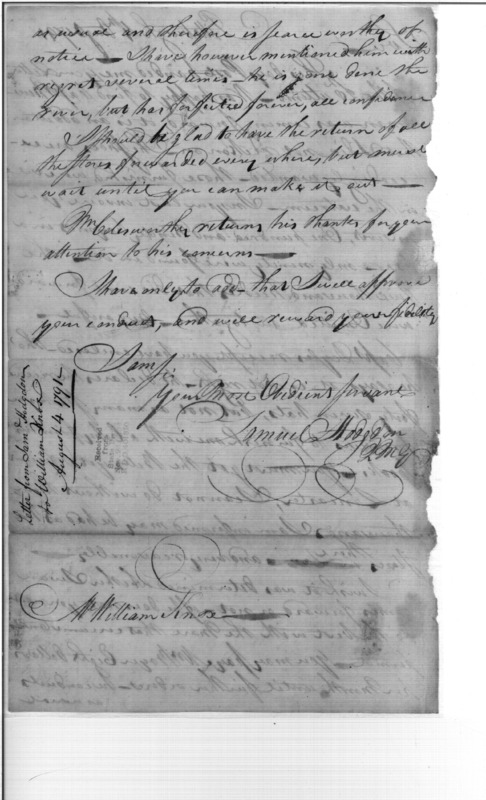 as usual and therefore is scarce worthy of
notice — I have however mentioned him with
regret several times — he is gone down the
river, but has forfeited forever, all confidence
I should be glad to have the return of all
the stores forwarded every where, but must
wait until you can make it out —
Mr Colesworthy returns his thanks for your
attention to his concerns —
I have only to add — that I well approve
your conduct, and will reward your fidelity
I am Sir
Your most Obedient Servant
Samuel Hodgdon
QMG
Letter from Sam Hodgdon
to William Knox
August 4 1791
Received
From
Mr William Knox